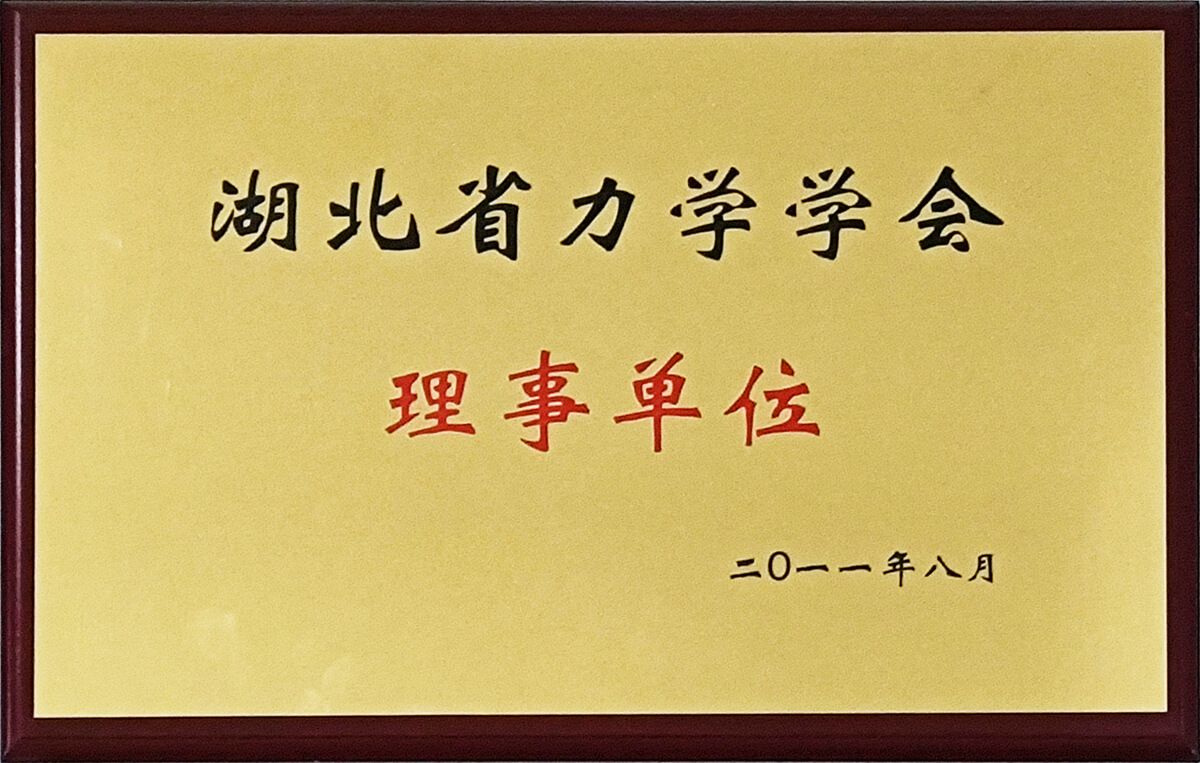 湖北省力学学会
理事单位
二〇一一年八月